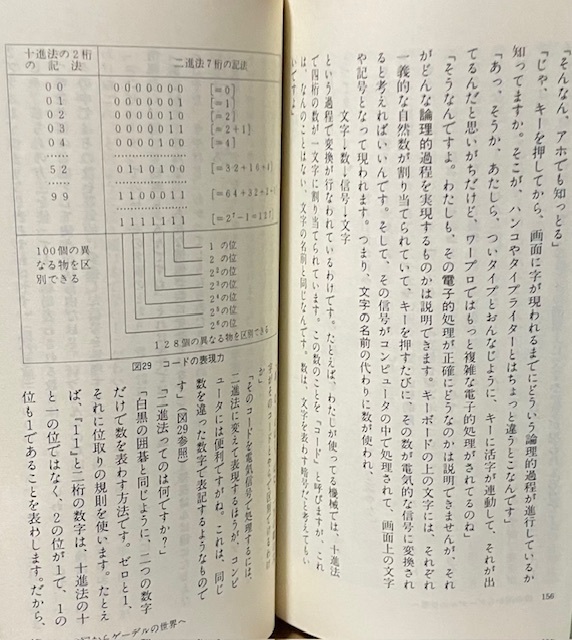 「そんなん、アホでも知っとる」
「じゃ、キーを押してから、画面に字が現われるまでにどういう論理的過程が進行しているか
知ってますか。そこが、ハンコやタイプライターとはちょっと違うとこなんです」
「あっ、そうか、あたしら、ついタイプとおんなじように、キーに活字が連動して、それが出
てるんだと思いがちだけど、ワープロではもっと複雑な電子的処理がされてるのね」
「そうなんですよ。わたしも、その電子的処理が正確にどうなのかは説明できませんが、それ
がどんな論理的過程を実現するものかは説明できます。キーボードの上の文字には、それぞれ
一義的な自然数が割り当てられていて、キーを押すたびに、その数が電気的な信号に変換され
ると考えればいいんです。そして、その信号がコンピュータの中で処理されて、画面上の文字
や記号となって現われます。つまり、文字の名前の代わりに数が使われ、
文字→数→信号→文字
という過程で変換が行なわれているわけです。たとえば、わたしが使ってる機械では、十進法
で四桁の数が一文字に割り当てられています。この数のことを「コード」と呼びますが、これ
は、なんのことはない、文字の名前と同じなんです。数は、文字を表わす暗号だと考えてもい
156
十進法の2桁
の記法
二進法7桁の記法
00 0000000 [=0]
01 0000001 [=1]
02 0000010 [=2]
03 0000011 [=2+1]
04 0000100 [=4]
…… …………
52 0110100 [=32+16+4]
…… …………
99 1100011 [=64+32+2+1]
…………
1111111 [=2⁷−1=127]
100個の異
なる物を区
別できる
1の位
2の位
2²の位
2³の位
2⁴の位
2⁵の位
2⁶の位
128個の異なる物を区別できる
図29 コードの表現力
「そのコードを電気信号で処理するには、
二進法に変えて表現するほうが、コンピ
ュータには便利ですがね。これは、同じ
数を違った数字で表記するようなもので
す」（図29参照）
「二進法ってのは何ですか？」
「白黒の囲碁と同じように、二つの数字
だけで数を表わす方法です。ゼロと1、
それに位取りの規則を使います。たとえ
ば、「11」と二桁の数字は、十進法の十
と一の位ではなく、2の位が1で、1の
位も1であることを表わします。だから、
からゲーデルの世界へ